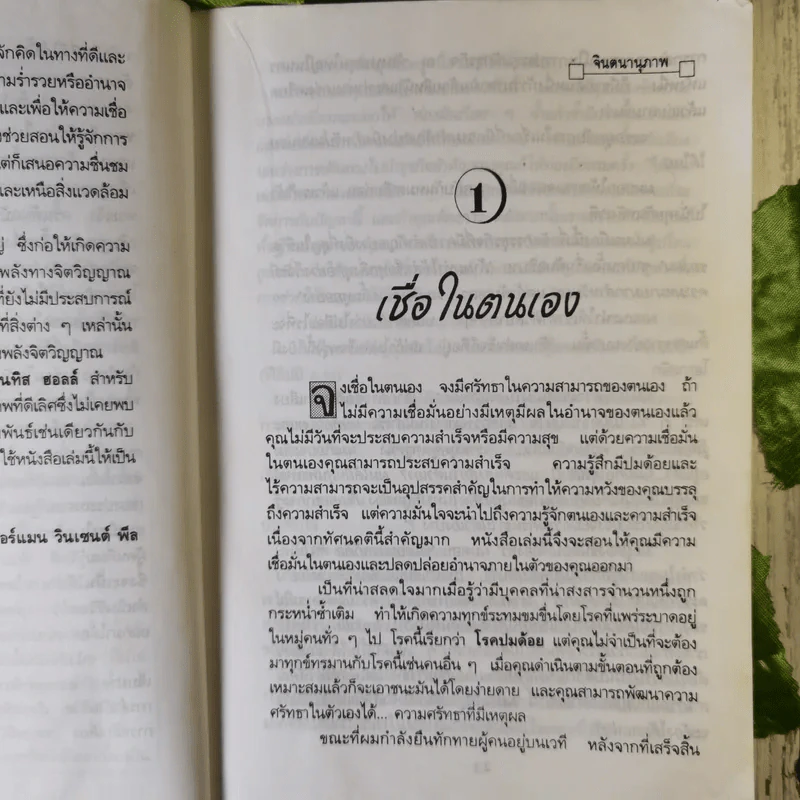 จักคิดในทางที่ดีและ
ามร่ำรวยหรืออำนาจ
และเพื่อให้ความเชื่อ
ช่วยสอนให้รู้จักการ
ต่ก็เสนอความชื่นชม
และเหนือสิ่งแวดล้อม
ซึ่งก่อให้เกิดความ
พลังทางจิตวิญญาณ
ที่ยังไม่มีประสบการณ์
ที่สิ่งต่าง ๆ เหล่านั้น
พลังจิตวิญญาณ
นทิส ฮอลล์ สำหรับ
าพที่ดีเลิศซึ่งไม่เคยพบ
พันธ์เช่นเดียวกันกับ
ใช้หนังสือเล่มนี้ให้เป็น
อร์แมน วินเซนต์ พีล
จินตนานุภาพ
1
เชื่อในตนเอง
จงเชื่อในตนเอง จงมีศรัทธาในความสามารถของตนเอง ถ้า
ไม่มีความเชื่อมั่นอย่างมีเหตุมีผลในอำนาจของตนเองแล้ว
คุณไม่มีวันที่จะประสบความสำเร็จหรือมีความสุข แต่ด้วยความเชื่อมั่น
ในตนเองคุณสามารถประสบความสำเร็จ ความรู้สึกมีปมด้อยและ
ไร้ความสามารถจะเป็นอุปสรรคสำคัญในการทำให้ความหวังของคุณบรรลุ
ถึงความสำเร็จ แต่ความมั่นใจจะนำไปถึงความรู้จักตนเองและความสำเร็จ
เนื่องจากทัศนคตินี้สำคัญมาก หนังสือเล่มนี้จึงจะสอนให้คุณมีความ
เชื่อมั่นในตนเองและปลดปล่อยอำนาจภายในตัวของคุณออกมา
เป็นที่น่าสลดใจมากเมื่อรู้ว่ามีบุคคลที่น่าสงสารจำนวนหนึ่งถูก
กระหน่ำซ้ำเติม ทำให้เกิดความทุกข์ระทมขมขื่นโดยโรคที่แพร่ระบาดอยู่
ในหมู่คนทั่ว ๆ ไป โรคนี้เรียกว่า โรคปมด้อย แต่คุณไม่จำเป็นที่จะต้อง
มาทุกข์ทรมานกับโรคนี้เช่นคนอื่น ๆ เมื่อคุณดำเนินตามขั้นตอนที่ถูกต้อง
เหมาะสมแล้วก็จะเอาชนะมันได้โดยง่ายดาย และคุณสามารถพัฒนาความ
ศรัทธาในตัวเองได้... ความศรัทธาที่มีเหตุผล
ขณะที่ผมกำลังยืนทักทายผู้คนอยู่บนเวที หลังจากที่เสร็จสิ้น